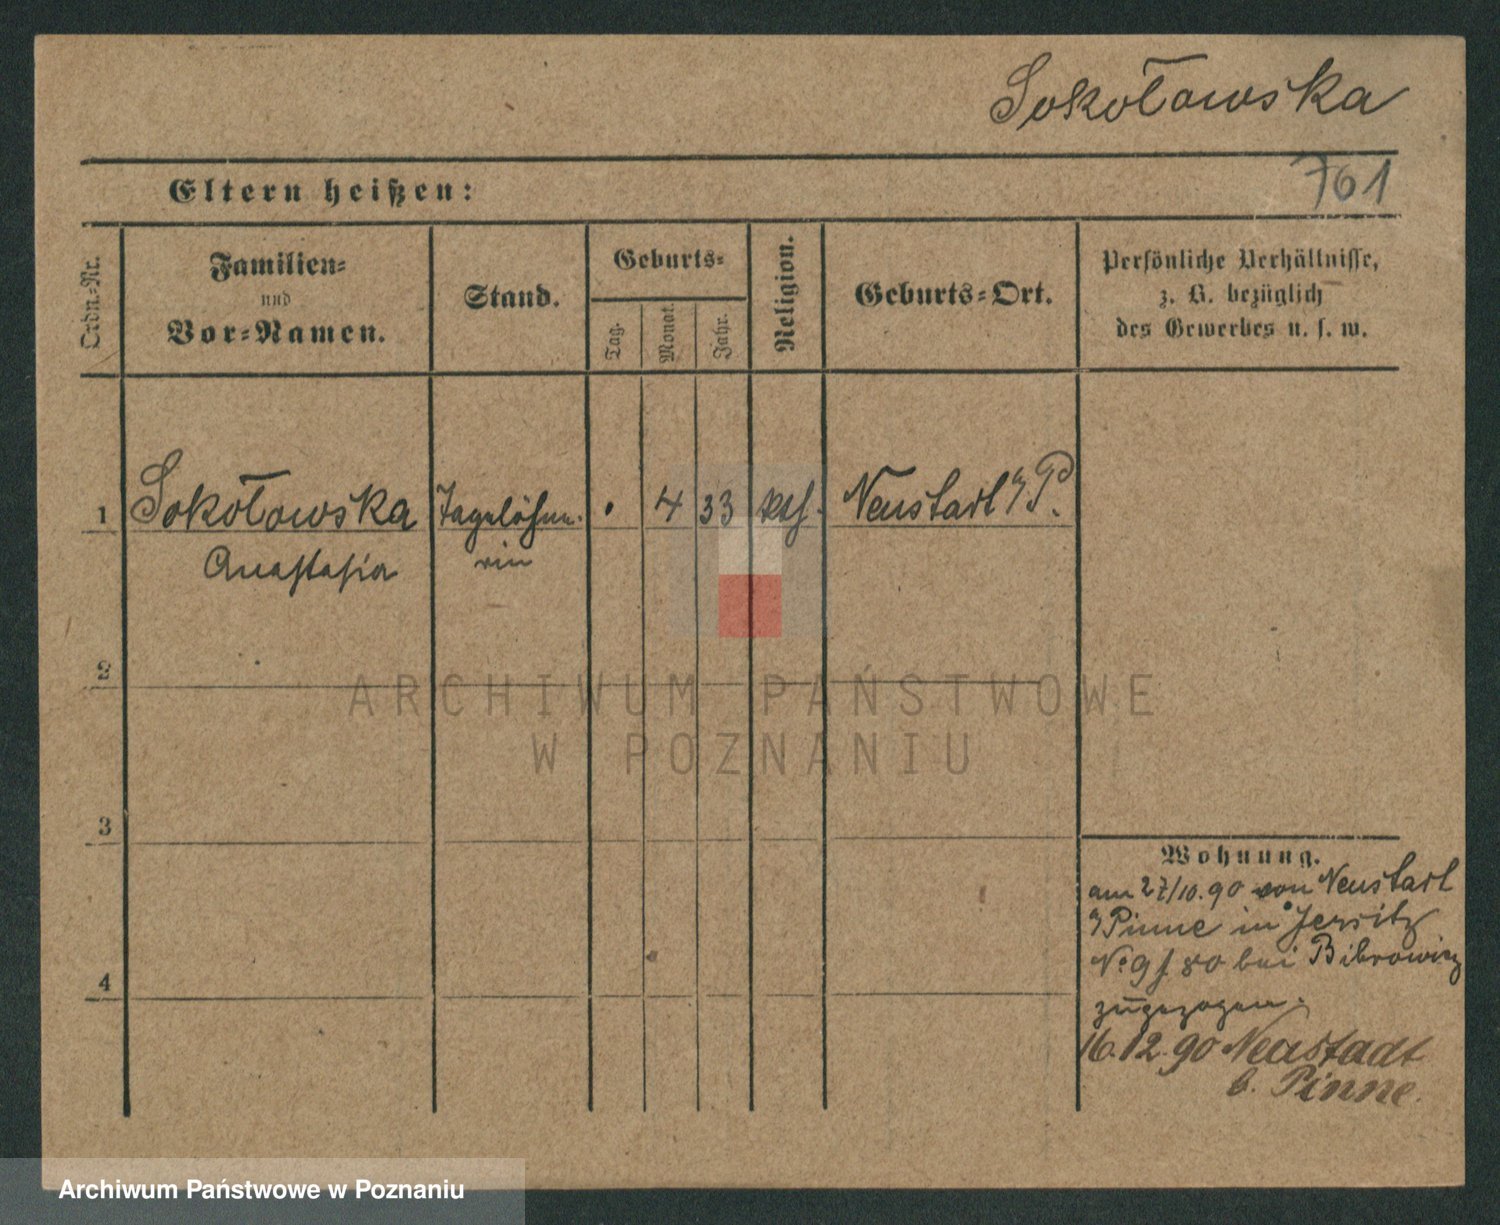 Sokołowska
761
Eltern heißen:
Ordn.-Nr.
Familien-
und
Vor-Namen.
Stand.
Geburts-
Tag.
Monat.
Jahr.
Religion.
Geburts-Ort.
Persönliche Verhältnisse,
z. B. bezüglich
des Gewerbes u. s. w.
1 Sokołowska Tagelöhne- . 4 33 kth. Neustadt
Anastasia rin
2
ARCHIWUM PAŃSTWOWE
W POZNANIU
3
Wohnung.
am 27/10.90 von Neustadt
Pinne in Jersitz
bei Bibrowicz
4
zugezogen.
16.12.90 Neustadt
b. Pinne.
Archiwum Państwowe w Poznaniu